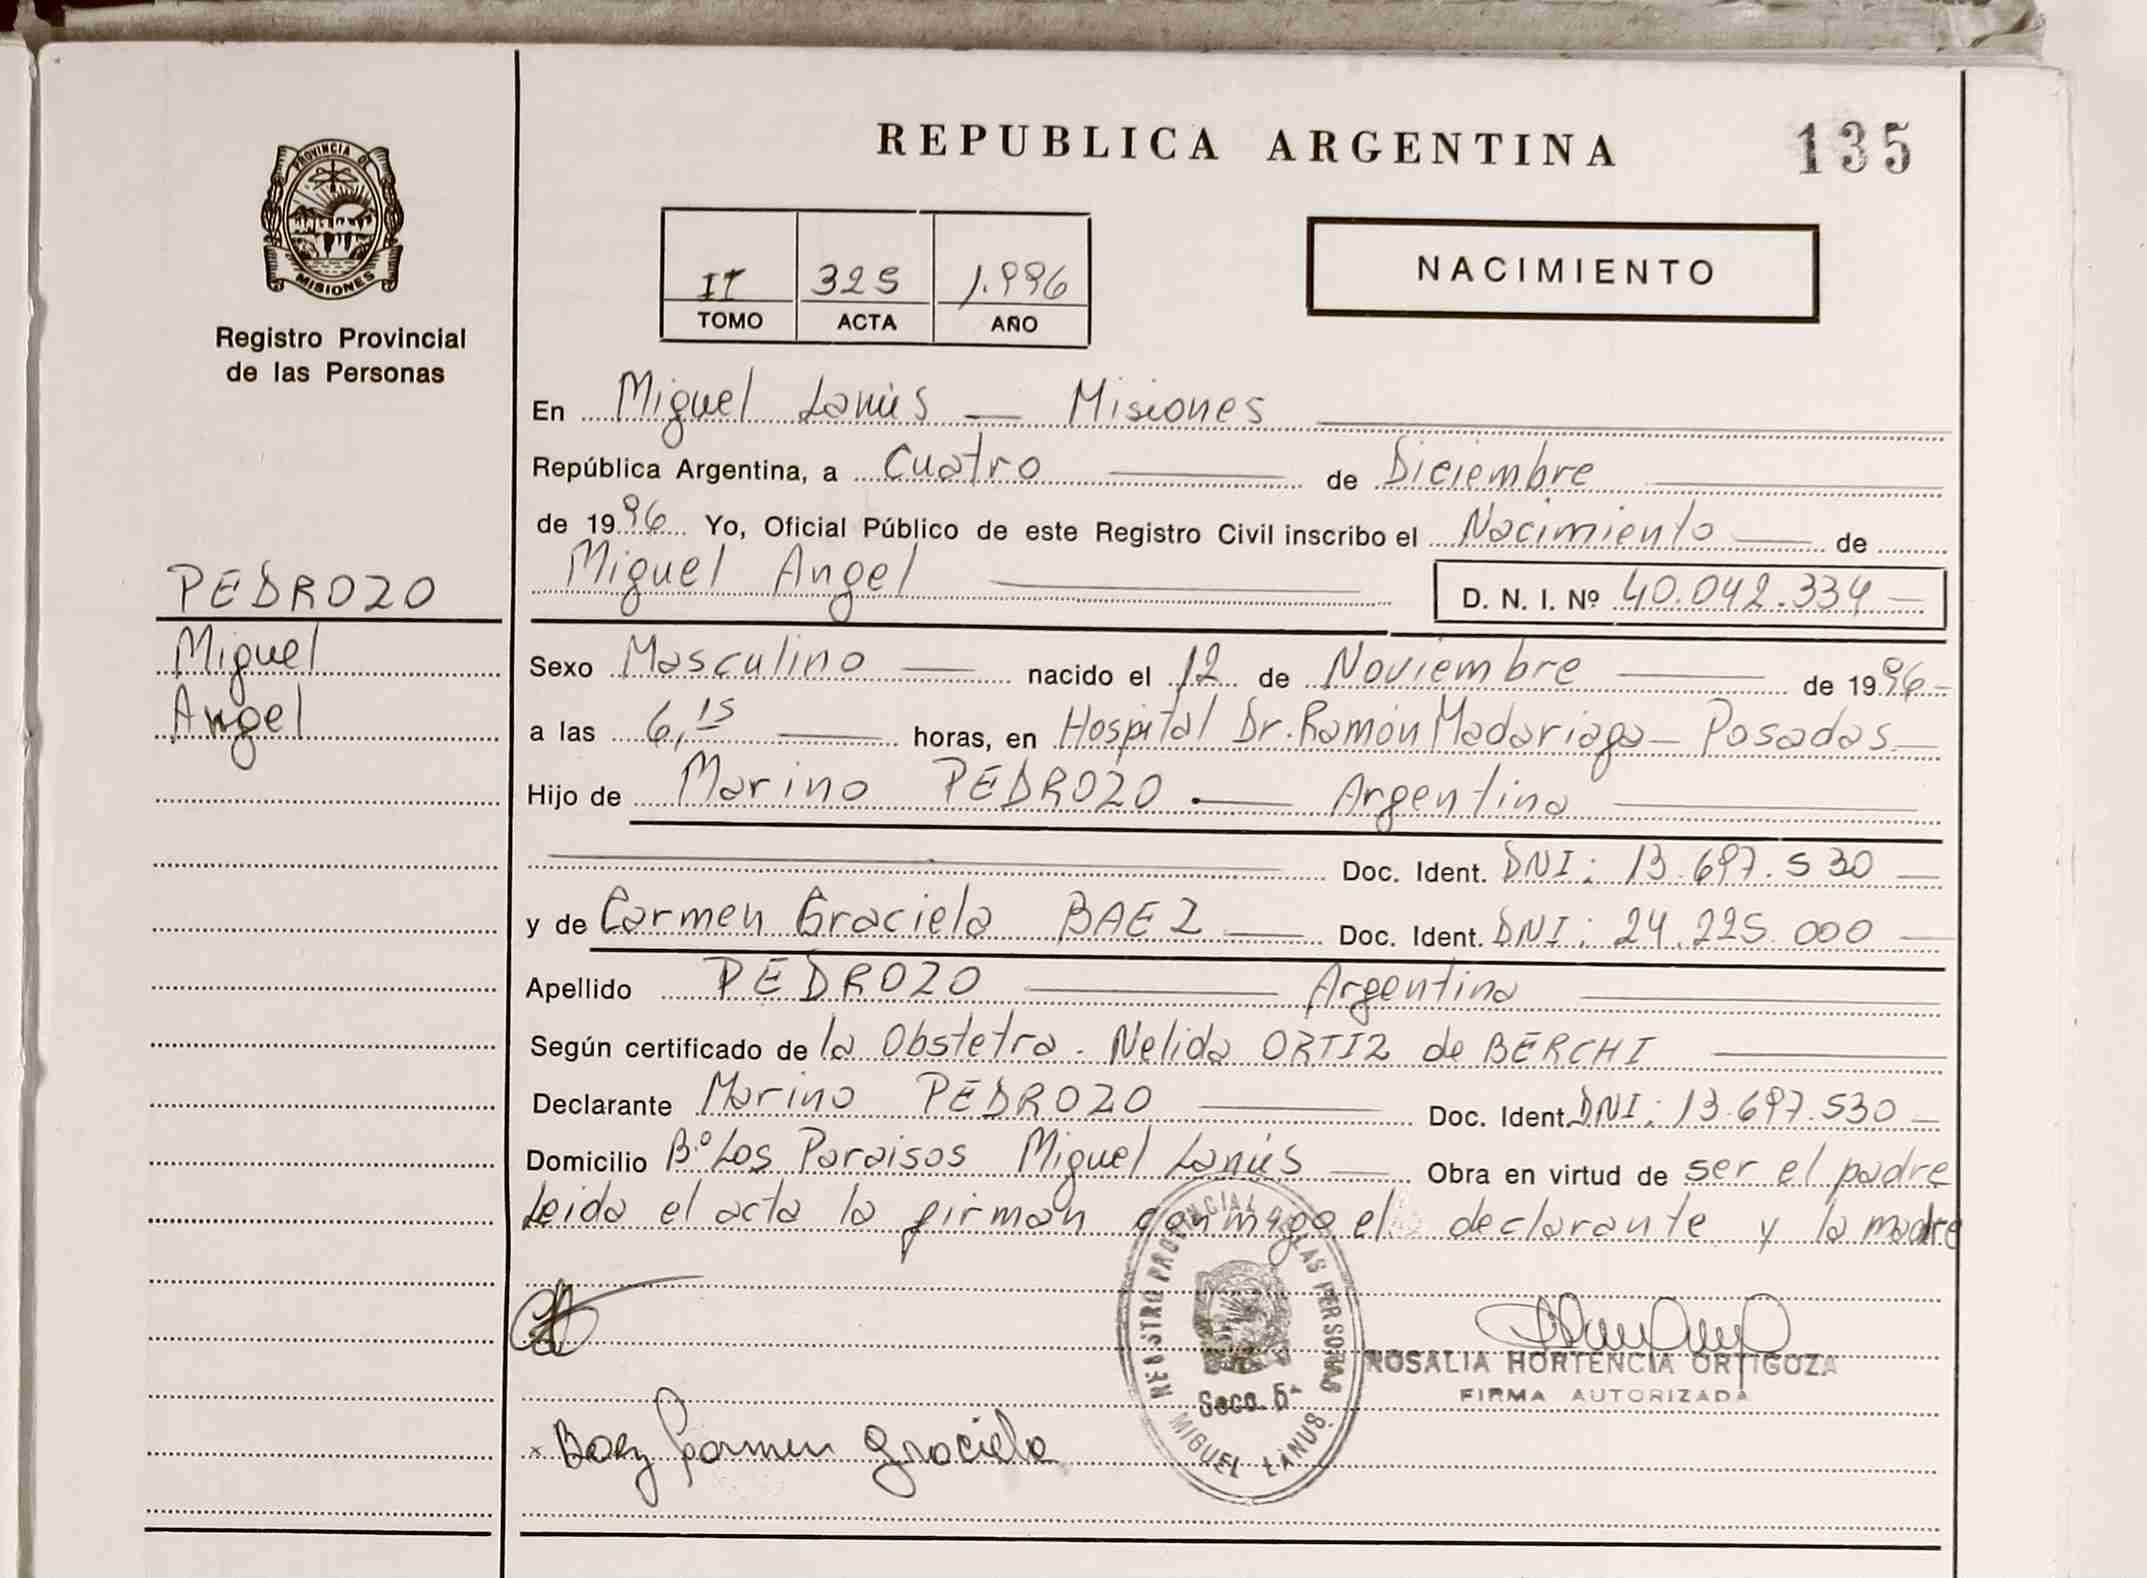 REPUBLICA ARGENTINA
135
PROVINCIA DE
MISIONES
Registro Provincial
de las Personas
II 325 1.996
TOMO ACTA AÑO
NACIMIENTO
En Miguel Lanús — Misiones
República Argentina, a Cuatro de Diciembre
de 1996 Yo, Oficial Público de este Registro Civil inscribo el Nacimiento de
Miguel Angel D. N. I. Nº 40.042.334
PEDROZO
Miguel
Angel
Sexo Masculino nacido el 12 de Noviembre de 1996
a las 6,15 horas, en Hospital Dr. Ramón Madariaga - Posadas
Hijo de Marino PEDROZO. Argentino
Doc. Ident. DNI: 13.697.530
y de Carmen Graciela BAEZ Doc. Ident. DNI: 24.225.000
Apellido PEDROZO Argentina
Según certificado de la Obstetra. Nelida ORTIZ de BERCHI
Declarante Marino PEDROZO Doc. Ident. DNI: 13.697.530
Domicilio B.º Los Paraisos Miguel Lanús Obra en virtud de ser el padre
Leida el acta la firman conmigo el declarante y la madre
REGISTRO PROVINCIAL DE LAS PERSONAS
Secc. 5ª
MIGUEL LANUS
ROSALIA HORTENCIA ORTIGOZA
FIRMA AUTORIZADA
x Baez Carmen Graciela